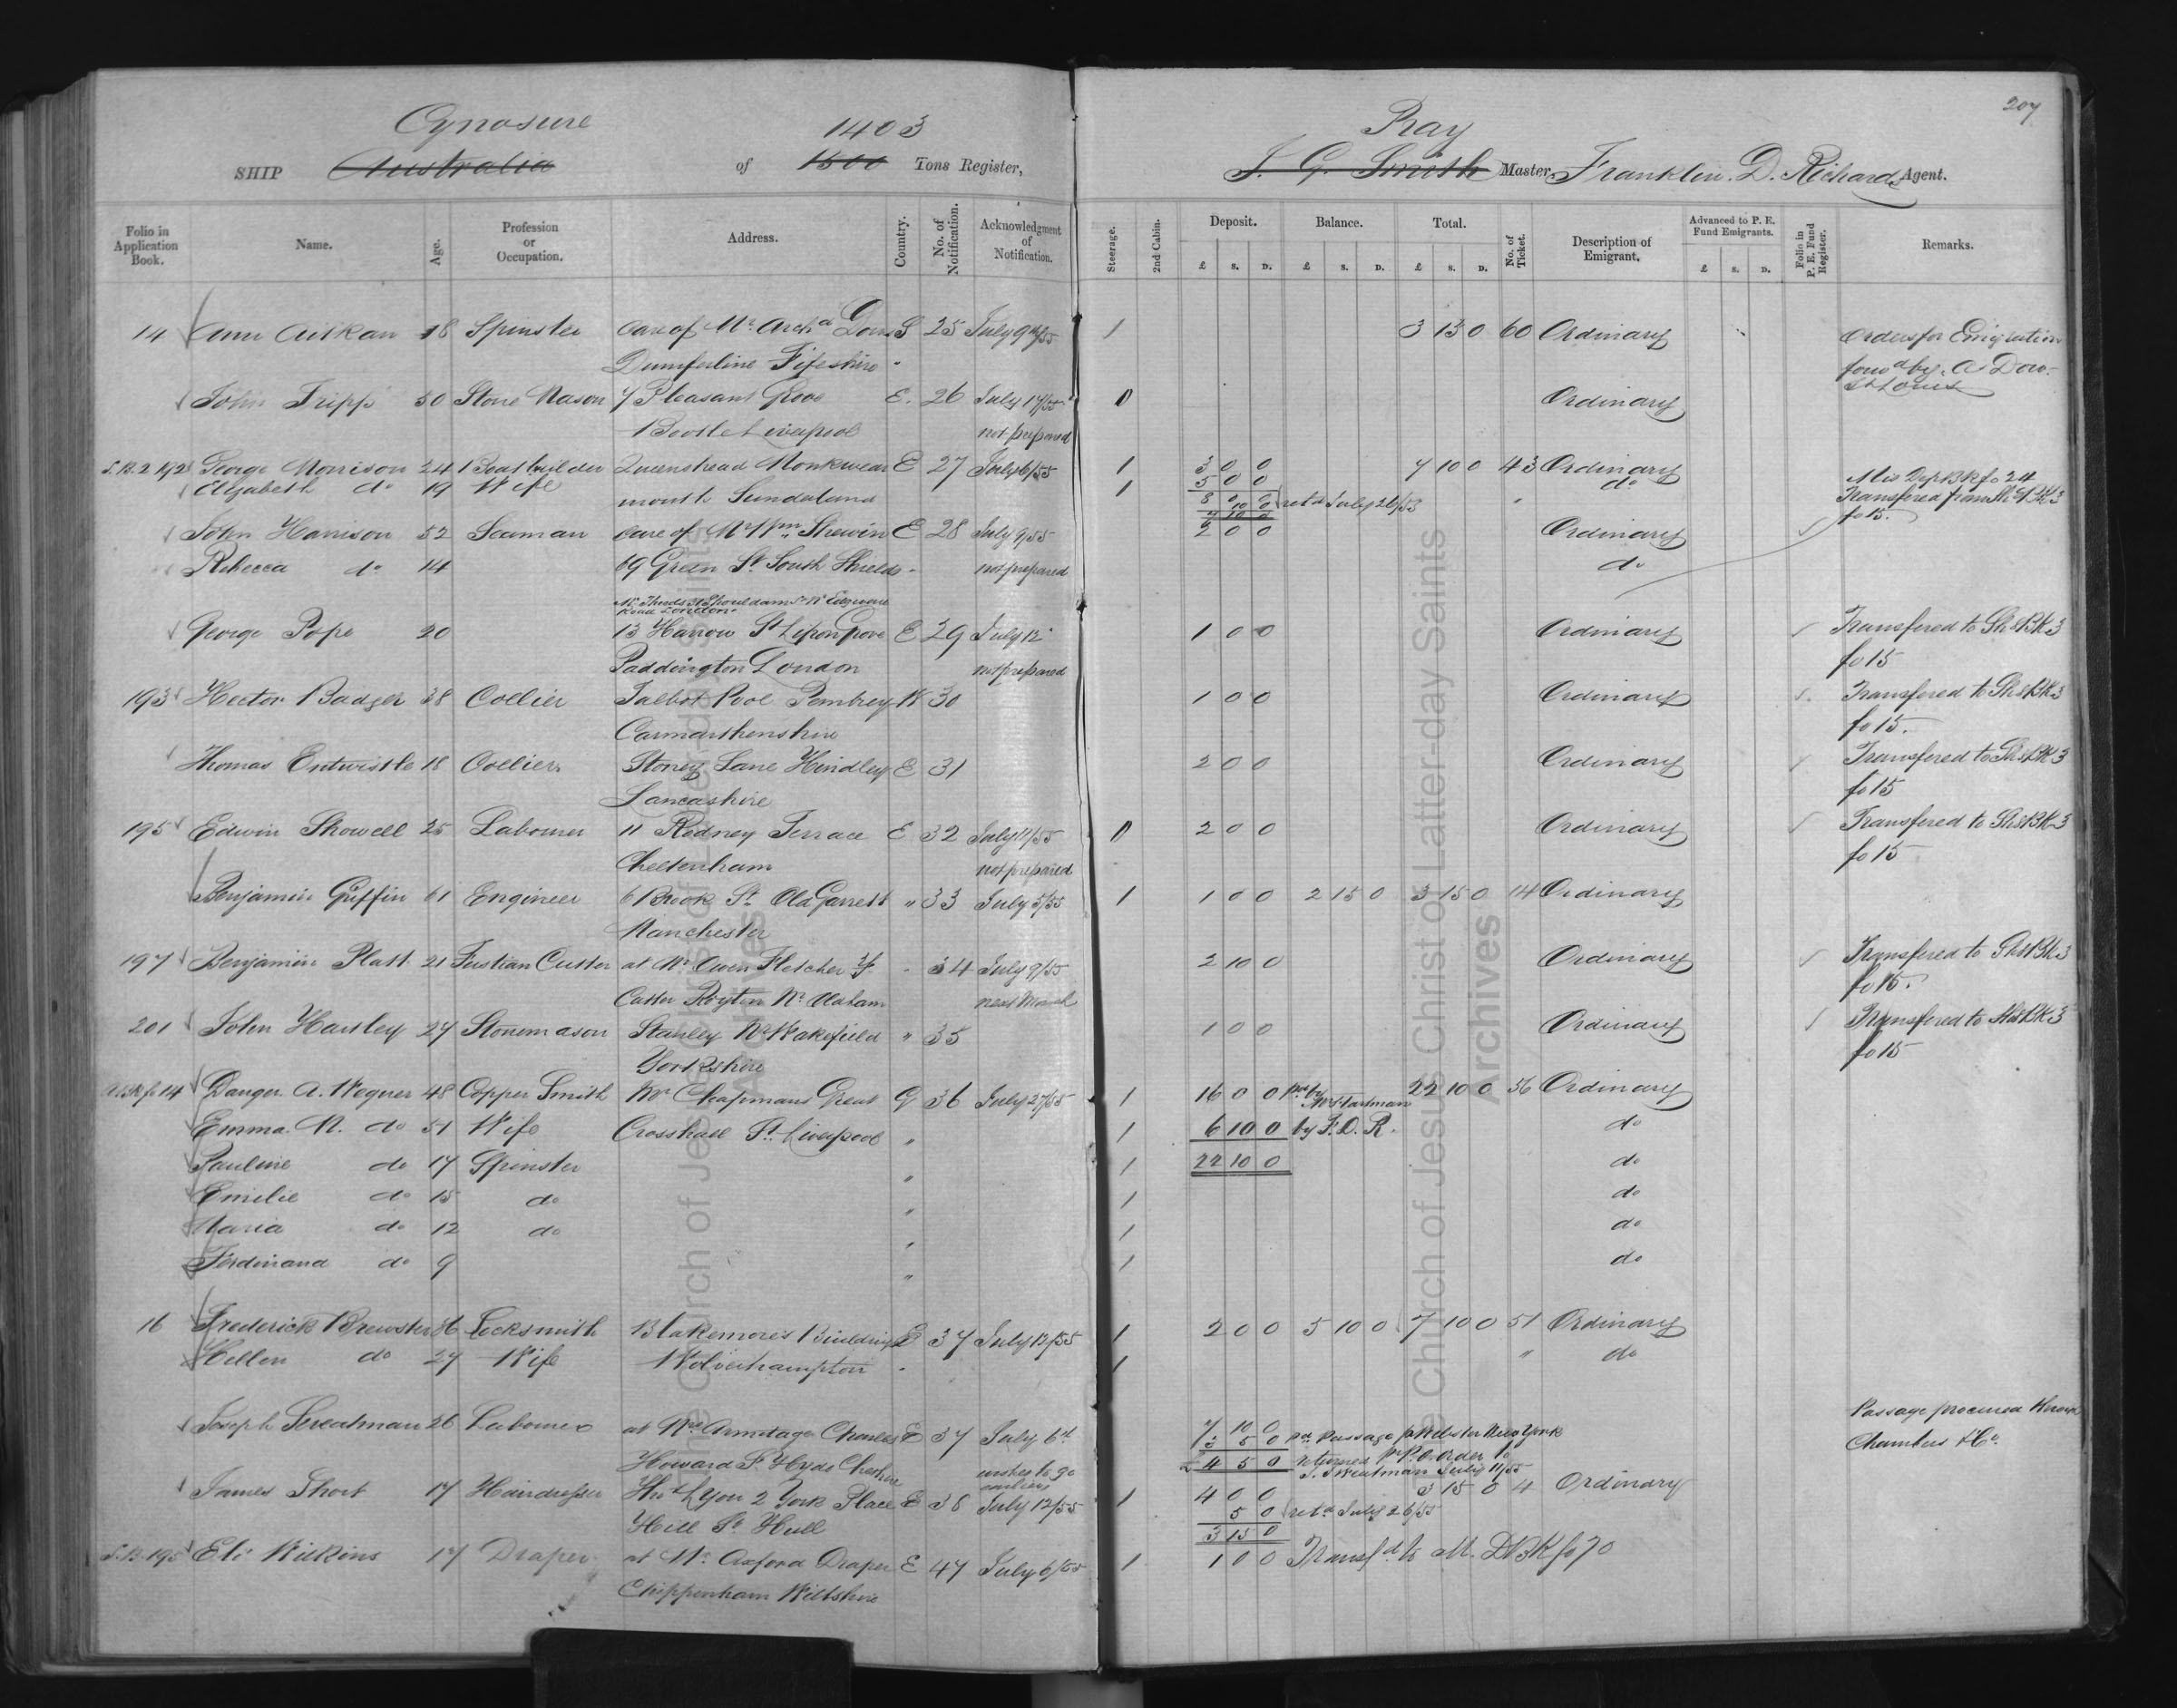 207
Cynosure 1403 Ray
SHIP Australia of 1500 Tons Register, J. G. Smith Master, Franklin. D. Richards Agent.
Folio in Application Book. Name. Age. Profession or Occupation. Address. Country. No. of Notification. Acknowledgment of Notification. Steerage. 2nd Cabin. Deposit. Balance. Total. No. of Ticket. Description of Emigrant. Advanced to P. E. Fund Emigrants. Folio in P. E. Fund Register. Remarks.
£ s. D. £ s. D. £ s. D. £ s. D.
14 Ann Aitkan 18 Spinster Care of Mr. Archd Dow S 25 July 9th/55 1 3 13 0 60 Ordinary Orders for Emigration
Dumferline Fifeshire forwd by A Dow
St Louis
John Tripp 50 Stone Mason 7 Pleasant Grove E. 26 July 17/55 Ordinary
Bootle Liverpool not prepared
S.B. 2 192 George Morrison 24 Boat builder Queenshead Monkwear E 27 July 6/55 1 3 0 0 7 10 0 43 Ordinary Mis Dep Bk fo 24
Elizabeth do 19 Wife mouth Sunderland 1 5 0 0 do
8 0 0
10 0 retd July 26/55
7 10 0
Transfered from Sh. 
fo 15.
John Harrison 52 Seaman care of Mr Wm Shewin E 28 July 9/55 2 0 0 Ordinary
Rebecca do 14 69 Green St South Shields not prepared do
Shouldam St Nr Edgware
Road London.
George Pope 20 13 Harrow St Lisson Grove E 29 July 12 1 0 0 Ordinary Transfered to Shs Bk 3
Paddington London not prepared fo 15
193 Hector Badger 38 Collier Talbot Pool Pembrey W 30 1 0 0 Ordinary Transfered to Shs Bk 3
Carmarthenshire fo 15.
Thomas Entwistle 18 Collier Stoney Lane Hindley E 31 2 0 0 Ordinary Transfered to Shs Bk 3
Lancashire fo 15
195 Edwin Showell 25 Labourer 11 Rodney Terrace E 32 July 11/55 2 0 0 Ordinary Transfered to Shs Bk 3
Cheltenham not prepared fo 15
Benjamin Griffin 61 Engineer 6 Brook St Old Garrett " 33 July 5/55 1 1 0 0 2 15 0 3 15 0 14 Ordinary
Manchester
197 Benjamin Platt 21 Fustian Cutter at Mr Owen Fletcher 34 July 9/55 2 10 0 Ordinary Transfered to Shs Bk 3
Cutter Royton Nr Oldham next March fo 15.
201 John Hartley 27 Stonemason Stanley Nr Wakefield " 35 1 0 0 Ordinary Transfered to Shs Bk 3
Yorkshire fo 15
fo 14 Danger. A. Wegner 48 Copper Smith Mr Chapmans Great G 36 July 27/55 1 16 0 0 pd by Mr Hartman 22 10 0 56 Ordinary
Emma. N. do 51 Wife Crosshall St. Liverpool " 1 6 10 0 by F. D. R. do
Pauline do 17 Spinster " 1 22 10 0 do
Emilie do 15 do " 1 do
Maria do 12 do " 1 do
Ferdinand do 9 " 1 do
16 Frederick Brewster 36 Locksmith Blakemores Buildings E 37 July 12/55 1 2 0 0 5 10 0 7 10 0 51 Ordinary
Hellen do 27 Wife Wolverhampton 1 " do
Joseph Sweatman 26 Labourer at Mrs Armitage Charles E 37 July 6th pd Passage pr Webster New York Passage procured
Howard St Hyde Cheshire wishes to go earlier 4 5 0 returned pr P. O. order to Chambers & Co.
J. Sweatman July 11/55
James Short 17 Hairdresser Thos Lyon 2 York Place E 38 July 12/55 1 4 0 0 3 15 0 4 Ordinary
Hill St Hull 5 0 retd July 26/55
3 15 0
S.B. 195 Eli Wilkins 17 Draper at Mr Oxford Draper E 47 July 6/55 1 1 0 0 Transfd to M. D Bk fo 70
Chippenham Wiltshire
The Church of Jesus Christ of Latter-day Saints
Archives
The Church of Jesus Christ of Latter-day Saints
Archives